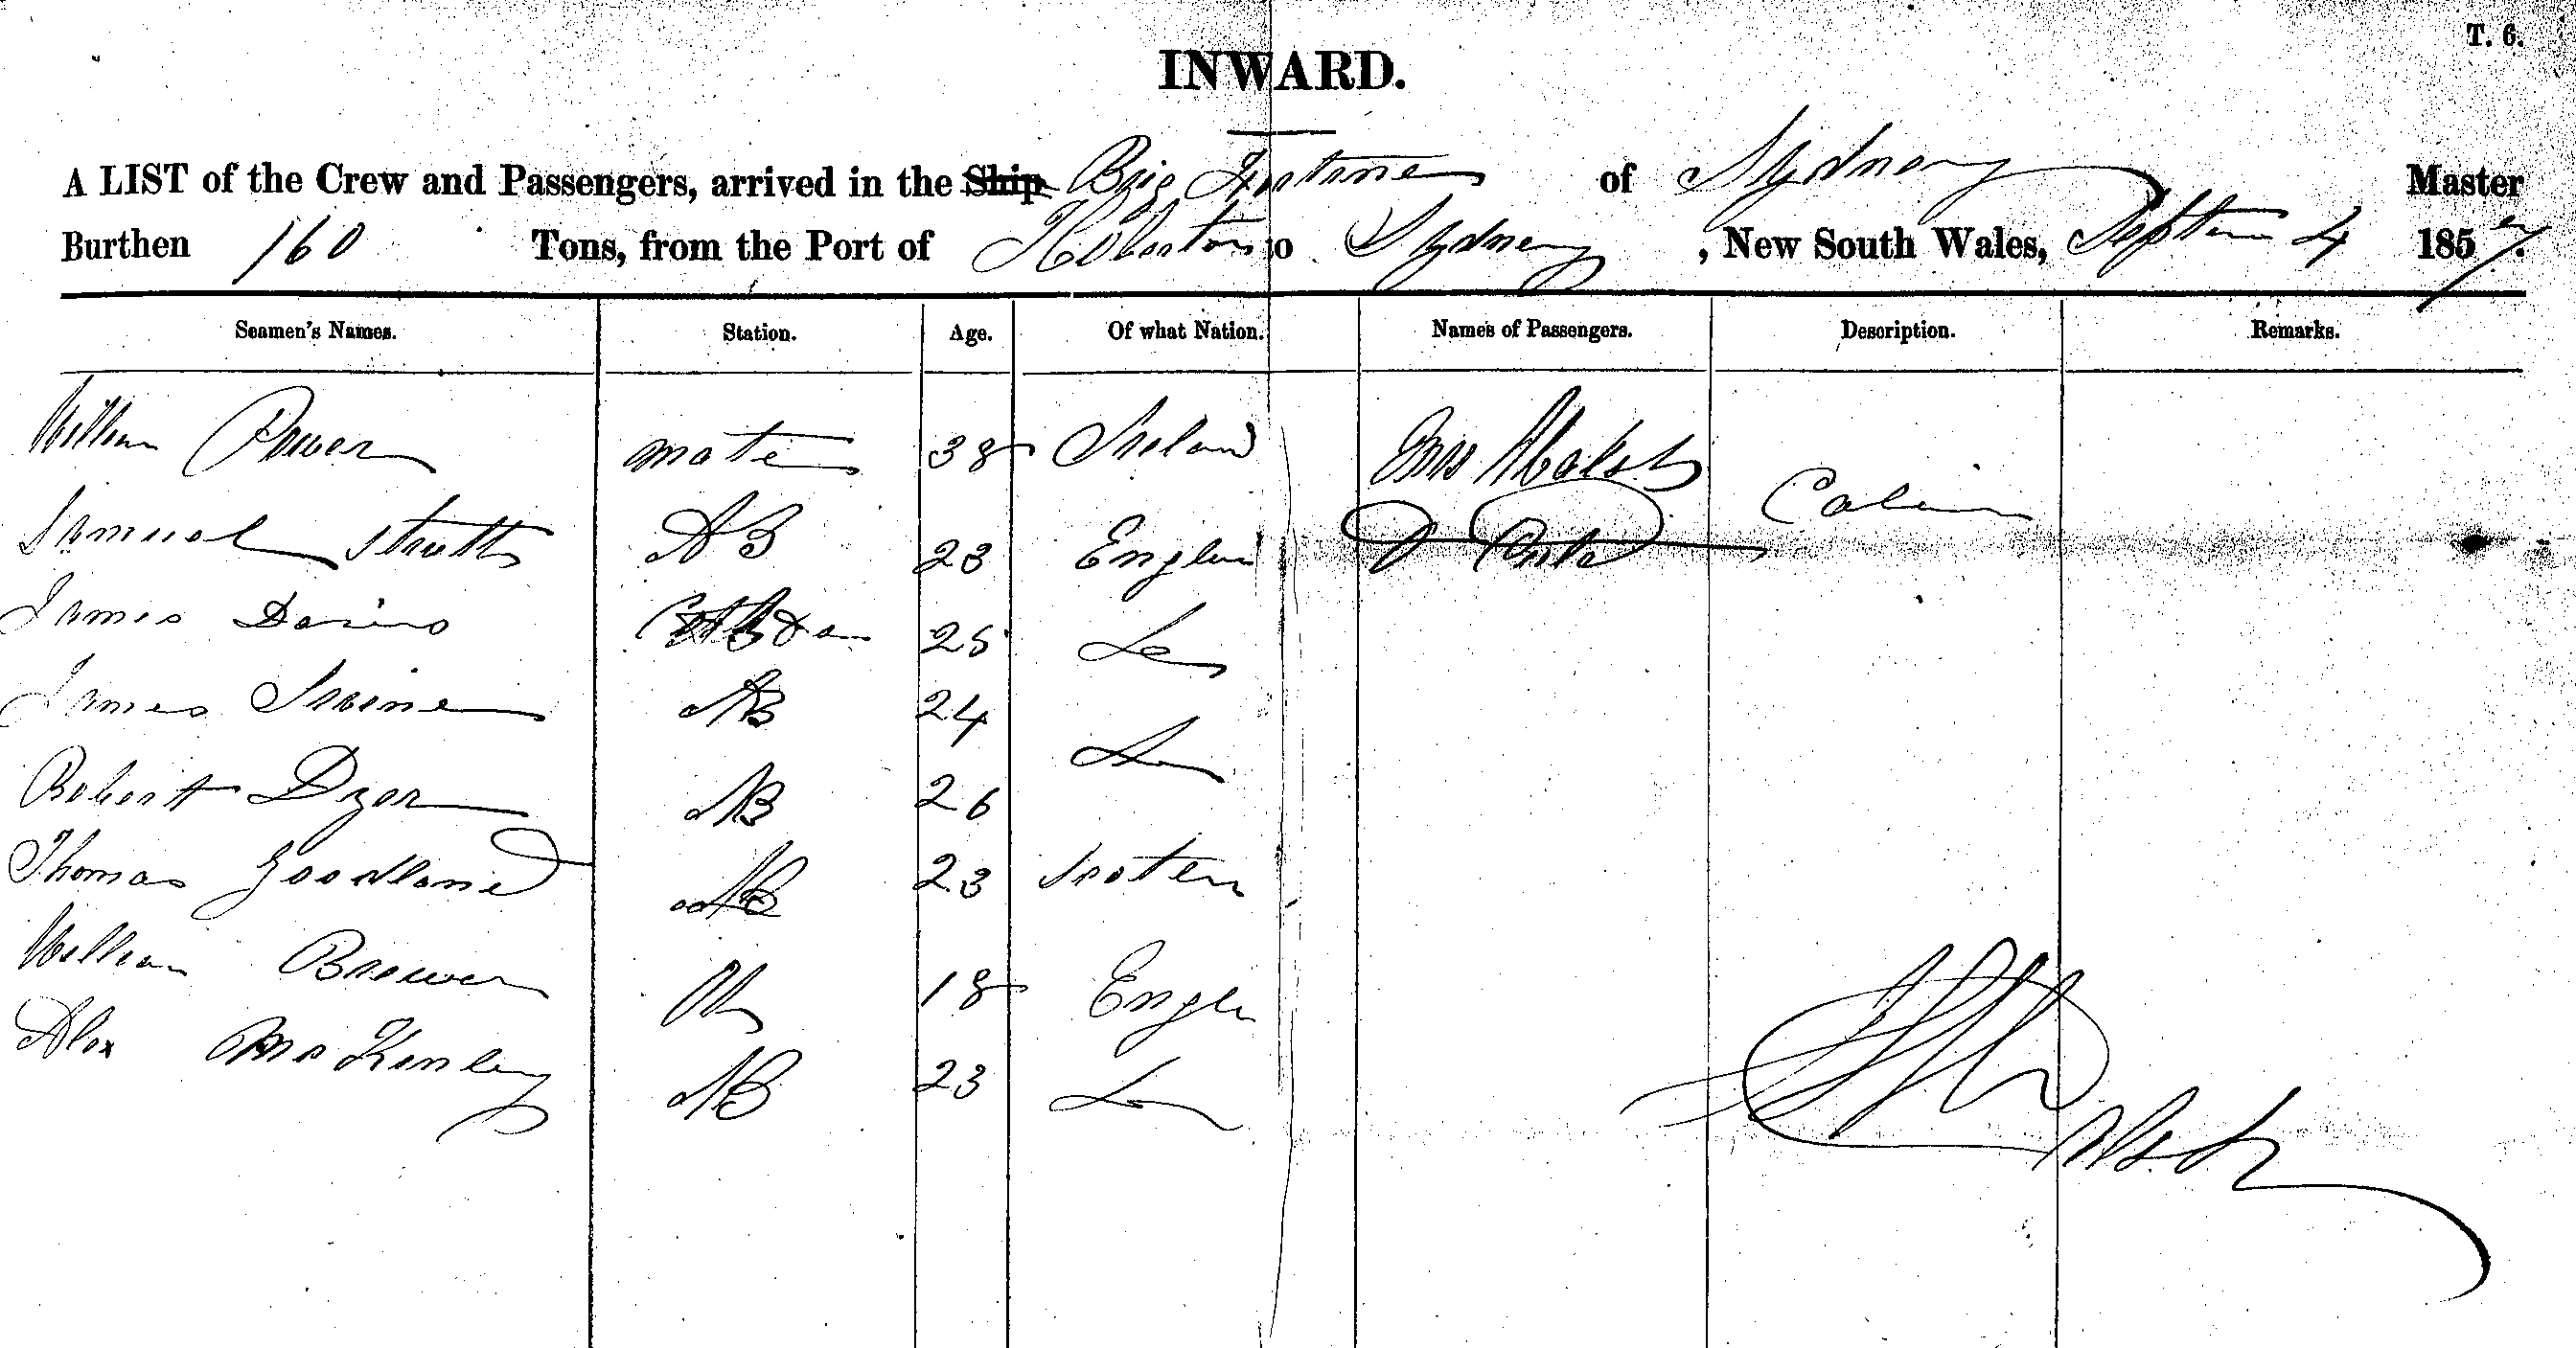 T. 6.
INWARD.
A LIST of the Crew and Passengers, arrived in the Ship Brig Fortune of Sydney Master
Burthen 160 Tons, from the Port of Hobarton to Sydney, New South Wales, Septem 4 1857.
Seamen's Names. Station. Age. Of what Nation. Names of Passengers. Description. Remarks.
William Power mate 38 Ireland Mrs
Samuel Strutt AB 23 England Cabin
James 25
James Irvine AB 24
Robert Dyer AB 26
Thomas Goodland AB 23
William Brewer 18 Engla
Alex McKenley AB 23